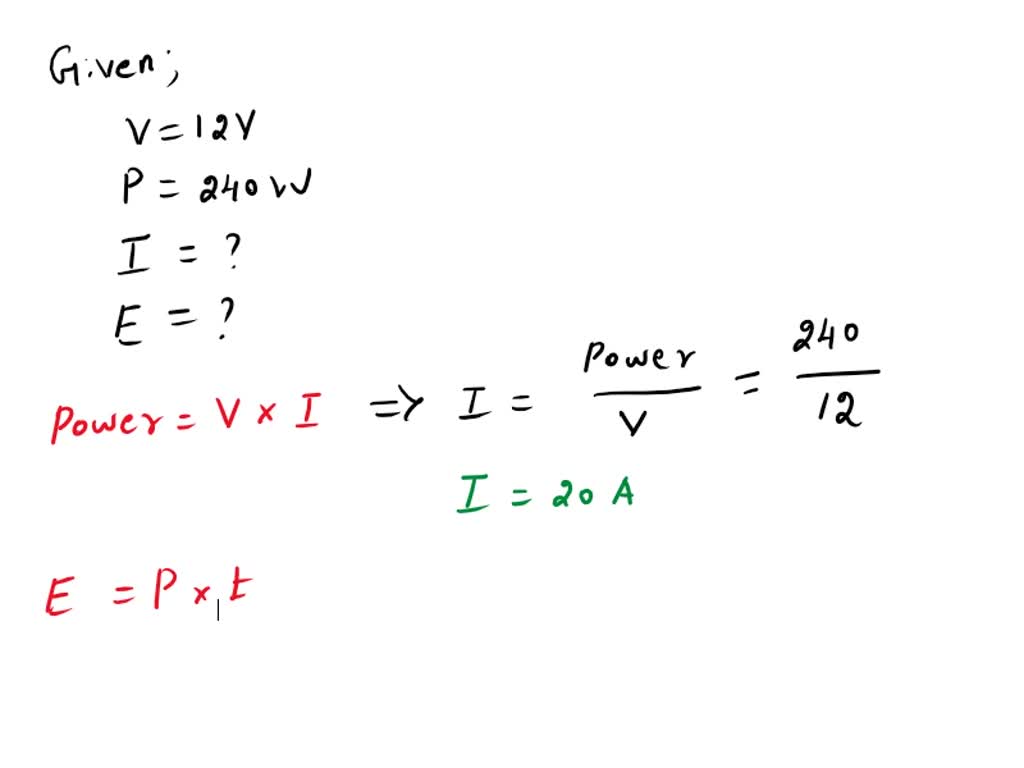 Given;
V = 12V
P = 240 W
I = ?
E = ?
Power = V × I => I = Power / V = 240 / 12
I = 20 A
E = P × t